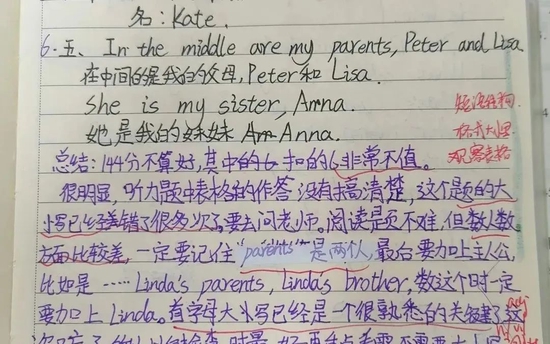 名:Kate.
6.五、In the middle are my parents, Peter and Lisa
在中间的是我的父母,Peter和 Lisa.
She is my sister, Anna.
她是我的妹妹 Am Anna.
短语结构
格式大小写
观察表格
总结:144分不算好,其中的6扣的6非常不值。
很明显,听力题中表格的作答没有搞清楚,这个是题的大
小写已经错了很多次了要去问老师。阅读是页不难,但数人数
方面比较差,一定要记住"parents"是两个人,最后要加上主人公,
比如是……Linda's parents, Linda's brother,数这个时一定
要加上 Linda。首字母大小写已经是一个很熟悉的关键了,这